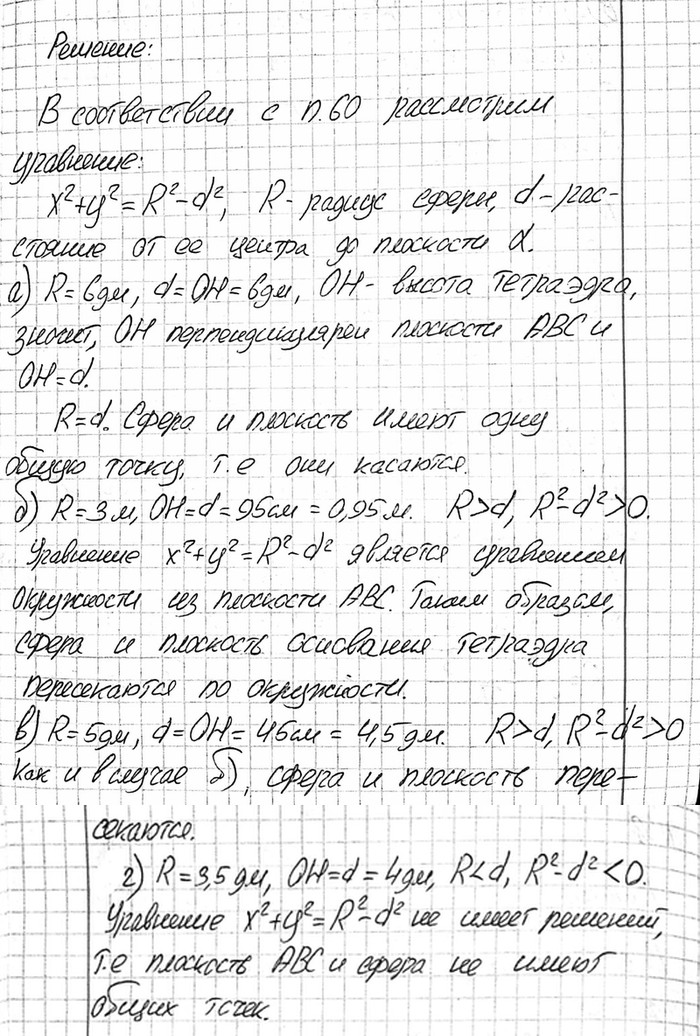 Решение:
В соответствии с п.60 рассмотрим
уравнение:
x²+y²=R²-d², R- радиус сферы, d-рас-
стояние от ее центра до плоскости α.
а) R=6дм, d=OH=6дм, OH- высота тетраэдра,
значит, OH перпендикулярен плоскости ABC и
OH=d.
R=d. Сфера и плоскость имеют одну
общую точку, т.е они касаются.
б) R=3м, OH=d=95см=0,95м. R>d, R²-d²>0.
Уравнение x²+y²=R²-d² является уравнением
окружности из плоскости ABC. Таким образом,
сфера и плоскость основания тетраэдра
пересекаются по окружности.
в) R=5дм, d=OH=45см=4,5дм. R>d, R²-d²>0
Как и в случае б), сфера и плоскость пере-
секаются.
г) R=3,5дм, OH=d=4дм, R<d, R²-d²<0.
Уравнение x²+y²=R²-d² не имеет решений,
т.е плоскость ABC и сфера не имеют
общих точек.